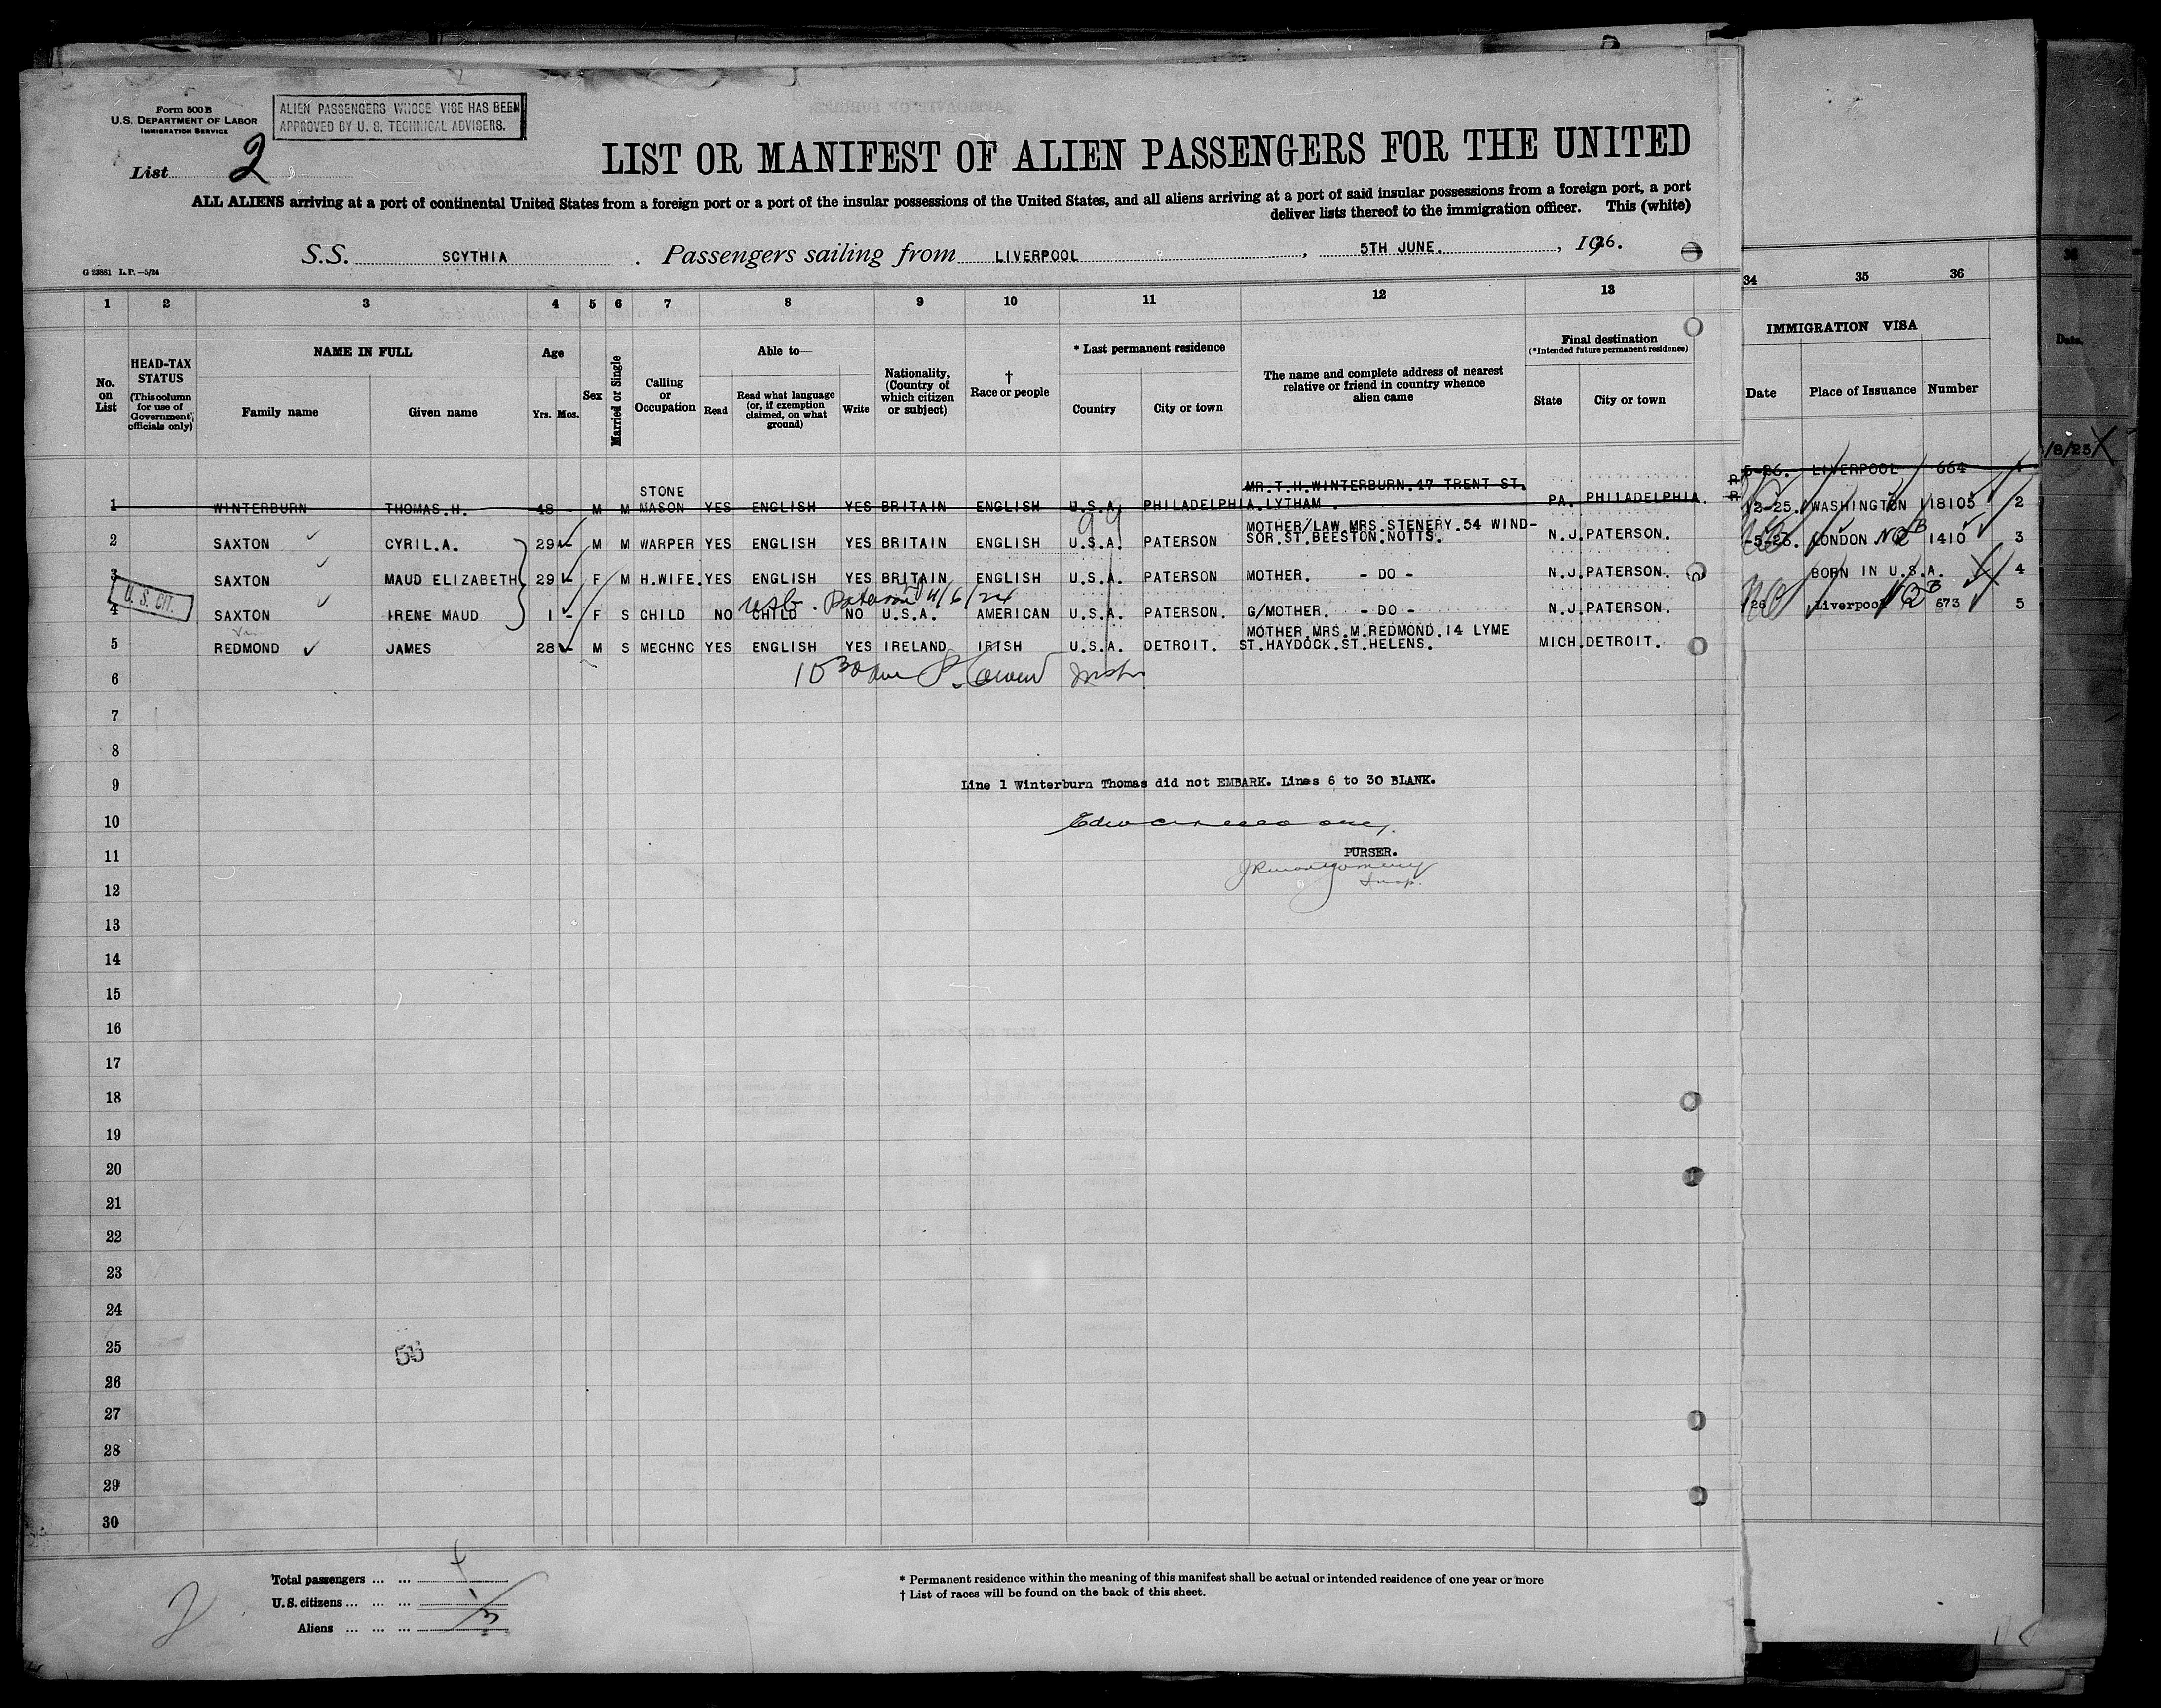 Form 500 B
U.S. DEPARTMENT OF LABOR
IMMIGRATION SERVICE
ALIEN PASSENGERS WHOSE VISE HAS BEEN
APPROVED BY U. S. TECHNICAL ADVISERS.
List 2
LIST OR MANIFEST OF ALIEN PASSENGERS FOR THE UNITED
ALL ALIENS arriving at a port of continental United States from a foreign port or a port of the insular possessions of the United States, and all aliens arriving at a port of said insular possessions from a foreign port, a port
deliver lists thereof to the immigration officer. This (white)
S.S. SCYTHIA. Passengers sailing from LIVERPOOL, 5TH JUNE., 1926.
G 23881 L.P.—5/24
1 2 3 4 5 6 7 8 9 10 11 12 13 34 35 36
No. on List
HEAD-TAX STATUS (This column for use of Government officials only)
NAME IN FULL
Family name Given name
Age
Yrs. Mos.
Sex
Married or Single
Calling or Occupation
Able to—
Read
Read what language (or, if exemption claimed, on what ground)
Write
Nationality, (Country of which citizen or subject)
† Race or people
* Last permanent residence
Country City or town
The name and complete address of nearest relative or friend in country whence alien came
Final destination
(*Intended future permanent residence)
State City or town
IMMIGRATION VISA
Date Place of Issuance Number
Date.
/8/25
1 WINTERBURN THOMAS.H. 48 M M STONE MASON YES ENGLISH YES BRITAIN ENGLISH U.S.A. PHILADELPHIA MR.T.H.WINTERBURN.47 TRENT ST. LYTHAM. PA. PHILADELPHIA. 5-26. LIVERPOOL 664 1
2 SAXTON CYRIL.A. 29 M M WARPER YES ENGLISH YES BRITAIN ENGLISH U.S.A. PATERSON MOTHER/LAW MRS.STENERY.54 WIND-SOR.ST.BEESTON.NOTTS. N.J. PATERSON. 12-25. WASHINGTON 118105 2
3 SAXTON MAUD ELIZABETH 29 F M H.WIFE. YES ENGLISH YES BRITAIN ENGLISH U.S.A. PATERSON MOTHER. - DO - N.J. PATERSON. -5-26. LONDON 1410 3
U. S. CIT.
Paterson 4/6/24
4 SAXTON IRENE MAUD 1 - F S CHILD NO CHILD NO U.S.A. AMERICAN U.S.A. PATERSON. G/MOTHER. - DO - N.J. PATERSON. BORN IN U.S.A. 4
5 REDMOND JAMES 28 M S MECHNC YES ENGLISH YES IRELAND IRISH U.S.A. DETROIT. MOTHER.MRS.M.REDMOND.14 LYME ST.HAYDOCK.ST.HELENS. MICH. DETROIT. 26 Liverpool 673 5
6
7
8
9 Line 1 Winterburn Thomas did not EMBARK. Lines 6 to 30 BLANK.
10
11 PURSER.
JRMontgomery
Insp.
12
13
14
15
16
17
18
19
20
21
22
23
24
25 55
26
27
28
29
30
Total passengers ... ...
U. S. citizens ... ... ... 1
Aliens ... ... ... 3
2
* Permanent residence within the meaning of this manifest shall be actual or intended residence of one year or more
† List of races will be found on the back of this sheet.